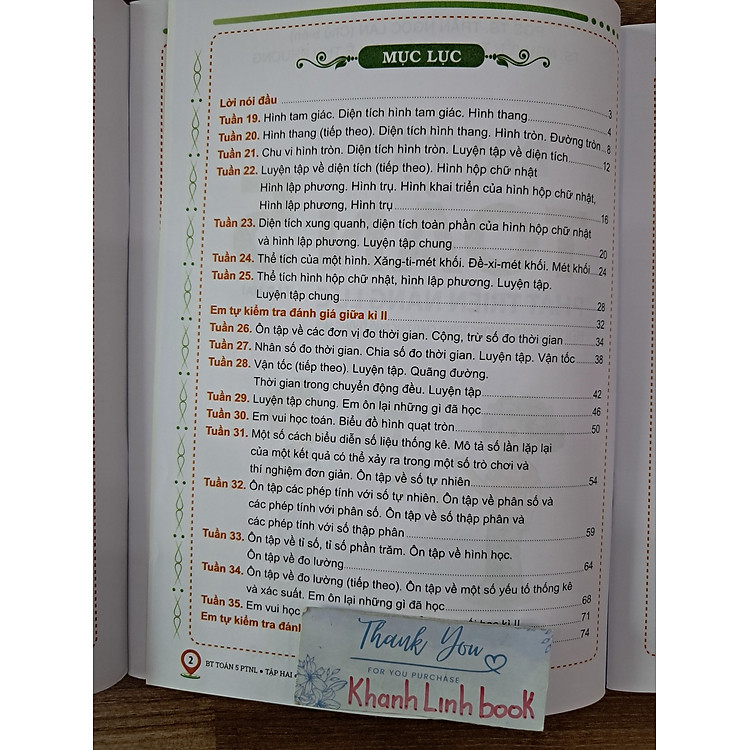 MỤC LỤC
Lời nói đầu 3
Tuần 19. Hình tam giác. Diện tích hình tam giác. Hình thang 4
Tuần 20. Hình thang (tiếp theo). Diện tích hình thang. Hình tròn. Đường tròn 8
Tuần 21. Chu vi hình tròn. Diện tích hình tròn. Luyện tập về diện tích 12
Tuần 22. Luyện tập về diện tích (tiếp theo). Hình hộp chữ nhật
Hình lập phương. Hình trụ. Hình khai triển của hình hộp chữ nhật,
Hình lập phương, Hình trụ 16
Tuần 23. Diện tích xung quanh, diện tích toàn phần của hình hộp chữ nhật
và hình lập phương. Luyện tập chung 20
Tuần 24. Thể tích của một hình. Xăng-ti-mét khối. Đề-xi-mét khối. Mét khối 24
Tuần 25. Thể tích hình hộp chữ nhật, hình lập phương. Luyện tập.
Luyện tập chung 28
Em tự kiểm tra đánh giá giữa kì II 32
Tuần 26. Ôn tập về các đơn vị đo thời gian. Cộng, trừ số đo thời gian 34
Tuần 27. Nhân số đo thời gian. Chia số đo thời gian. Luyện tập. Vận tốc 38
Tuần 28. Vận tốc (tiếp theo). Luyện tập. Quãng đường.
Thời gian trong chuyển động đều. Luyện tập 42
Tuần 29. Luyện tập chung. Em ôn lại những gì đã học 46
Tuần 30. Em vui học toán. Biểu đồ hình quạt tròn 50
Tuần 31. Một số cách biểu diễn số liệu thống kê. Mô tả số lần lặp lại
của một kết quả có thể xảy ra trong một số trò chơi và
thí nghiệm đơn giản. Ôn tập về số tự nhiên 54
Tuần 32. Ôn tập các phép tính với số tự nhiên. Ôn tập về phân số và
các phép tính với phân số. Ôn tập về số thập phân và
các phép tính với số thập phân 59
Tuần 33. Ôn tập về tỉ số, tỉ số phần trăm. Ôn tập về hình học.
Ôn tập về đo lường 64
Tuần 34. Ôn tập về đo lường (tiếp theo). Ôn tập về một số yếu tố thống kê
và xác suất. Em ôn lại những gì đã học 68
Tuần 35. Em vui học 71
Em tự kiểm tra đánh 74
2 BT TOÁN 5 PTNL • TẬP HAI
Thank You
FOR YOU PURCHASE
Khanh Linh book